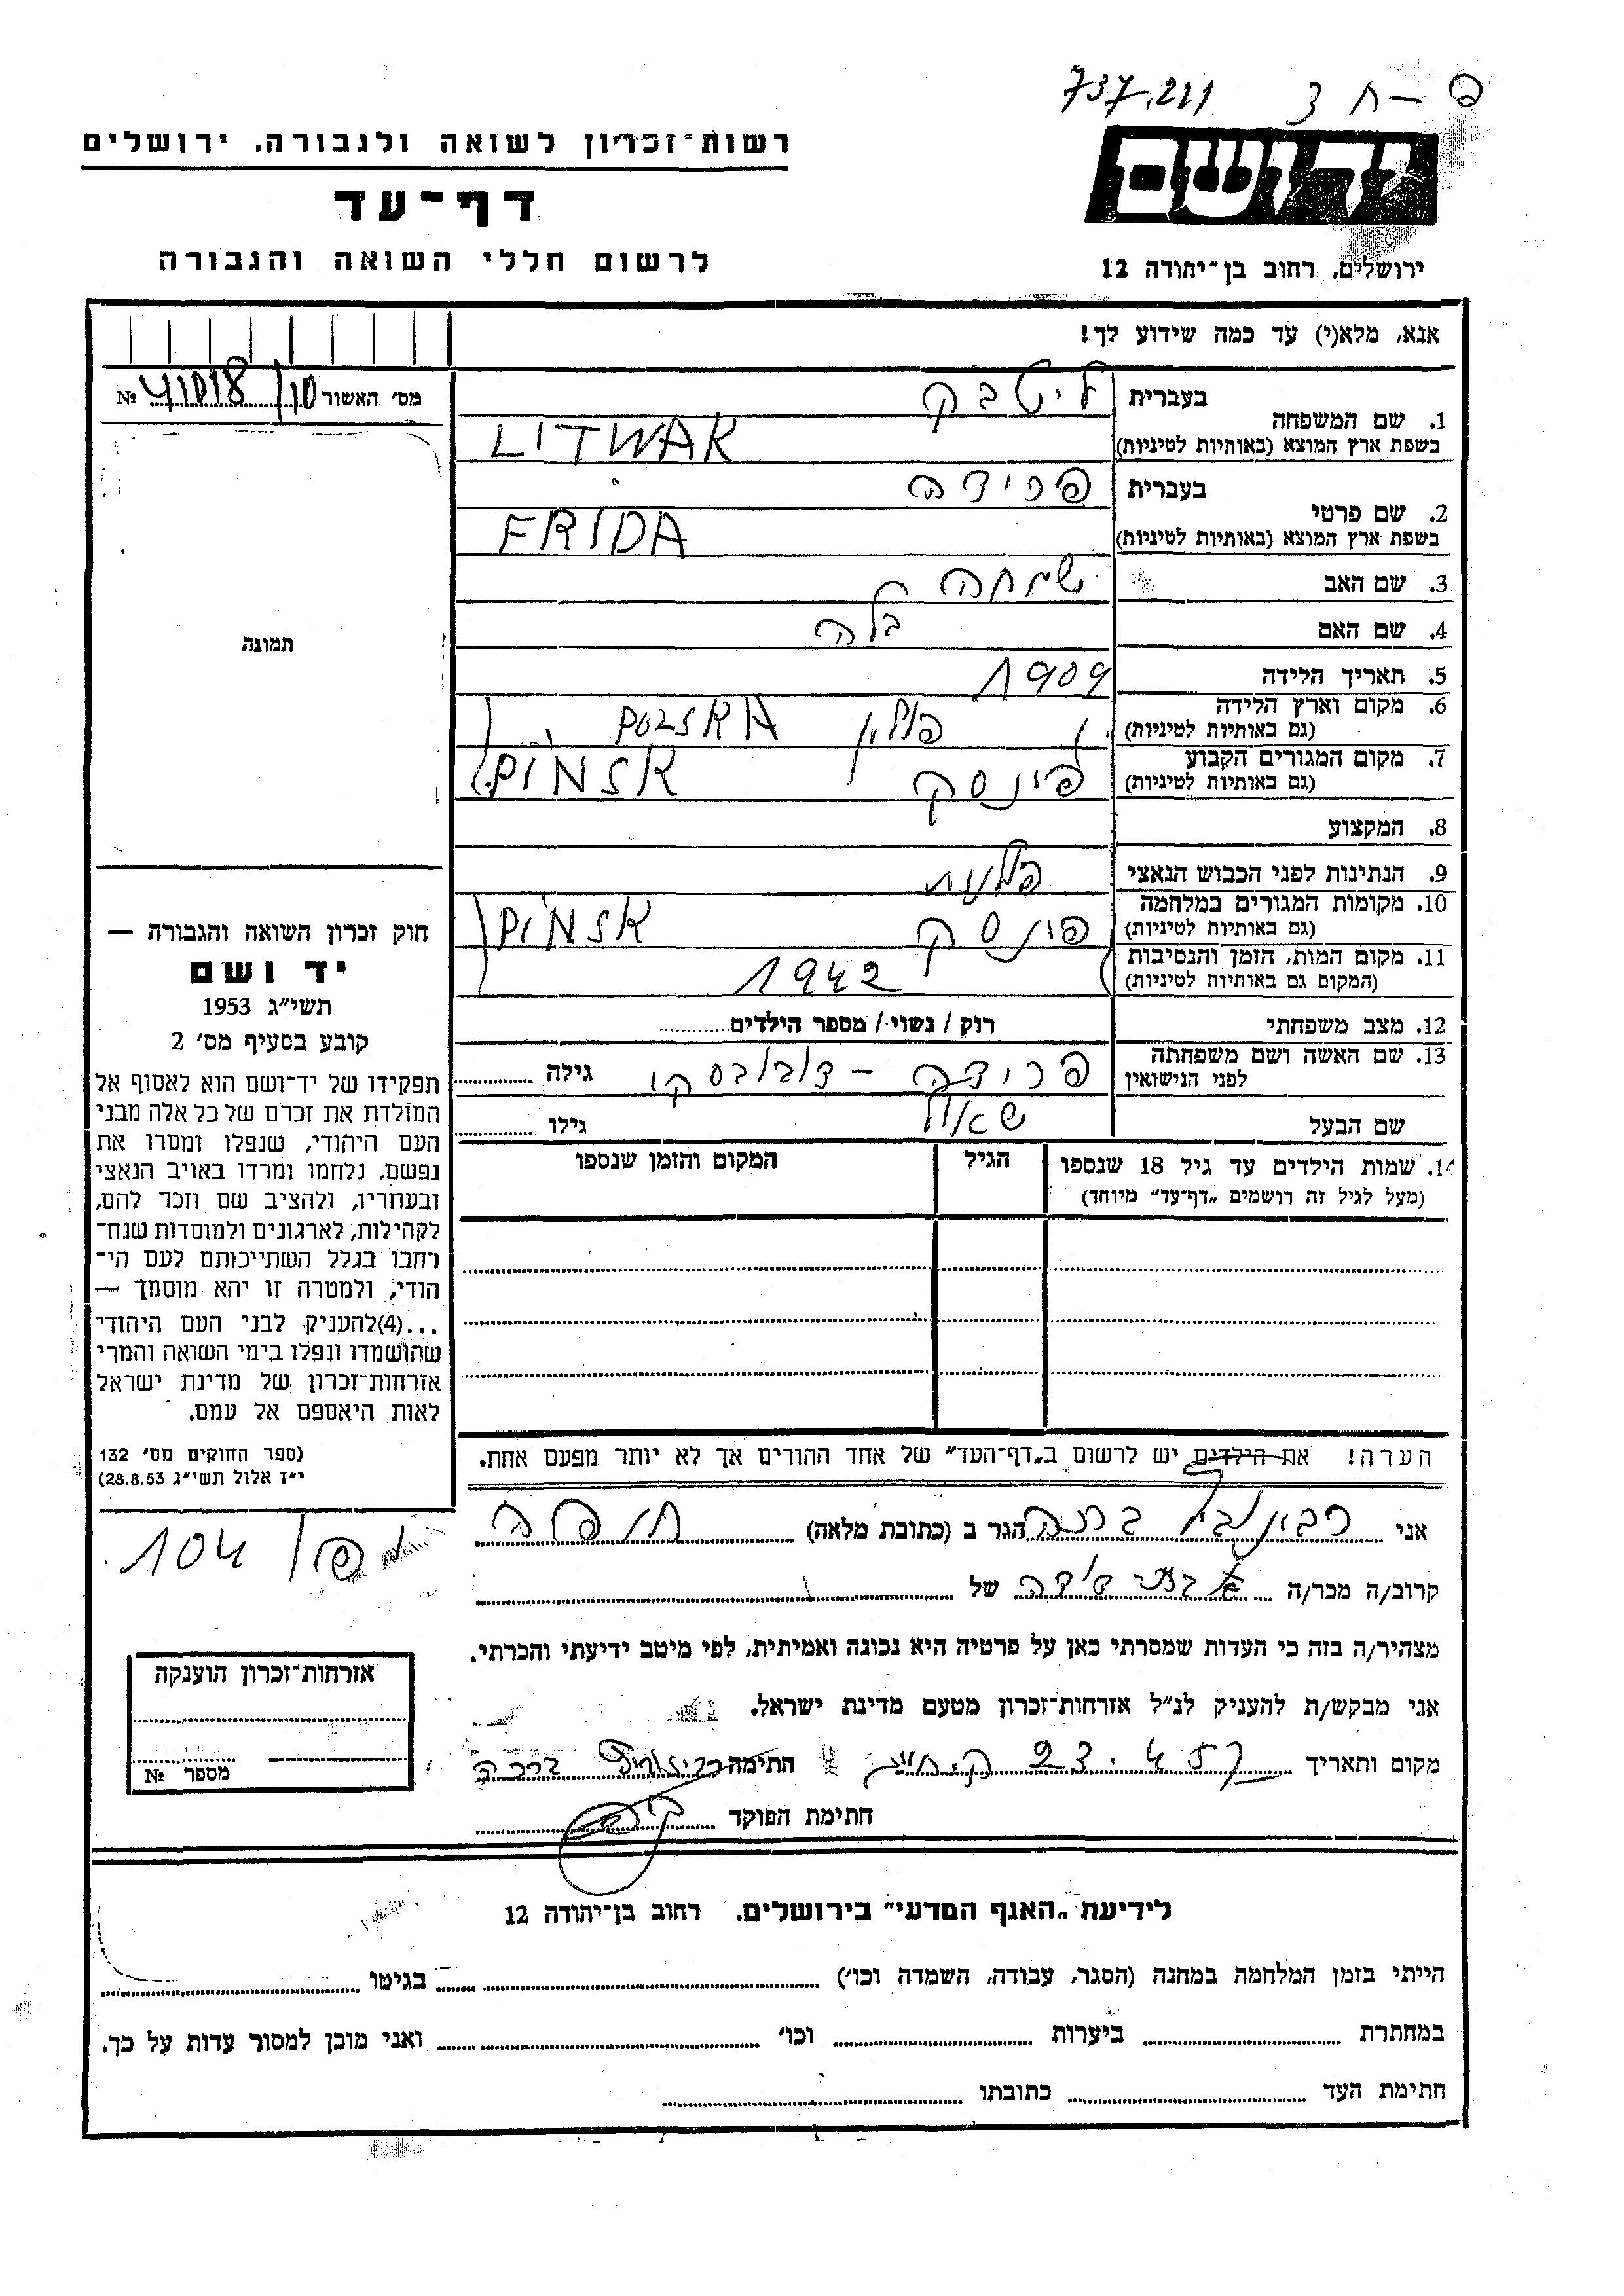 737.211 פ – ח 3
יד ושם
רשות־זכרון לשואה ולגבורה. ירושלים
דף־עד
לרשום חללי השואה והגבורה
ירושלים, רחוב בן־יהודה 12
אנא, מלא(י) עד כמה שידוע לך!
מס׳ האשור 10/41018 №
1. שם המשפחה בעברית ליטבק
בשפת ארץ המוצא (באותיות לטיניות) LITWAK
2. שם פרטי בעברית פרידה
בשפת ארץ המוצא (באותיות לטיניות) FRIDA
3. שם האב שמחה
4. שם האם בלה
5. תאריך הלידה 1909
6. מקום וארץ הלידה פולין POLSKA
(גם באותיות לטיניות)
7. מקום המגורים הקבוע פינסק PIŃSK
(גם באותיות לטיניות)
8. המקצוע
9. הנתינות לפני הכבוש הנאצי
10. מקומות המגורים במלחמה פינסק PIŃSK
(גם באותיות לטיניות)
11. מקום המות, הזמן והנסיבות 1942
(המקום גם באותיות לטיניות)
12. מצב משפחתי רוק / נשוי / מספר הילדים
13. שם האשה ושם משפחתה פרידה – גילה
לפני הנישואין
שם הבעל שאול גילו
14. שמות הילדים עד גיל 18 שנספו הגיל המקום והזמן שנספו
(מעל לגיל זה רושמים „דף־עד” מיוחד)
הערה! את הילדים יש לרשום ב„דף־העד” של אחד ההורים אך לא יותר מפעם אחת.
תמונה
חוק זכרון השואה והגבורה —
יד ושם
תשי״ג 1953
קובע בסעיף מס׳ 2
תפקידו של יד־ושם הוא לאסוף אל
המולדת את זכרם של כל אלה מבני
העם היהודי, שנפלו ומסרו את
נפשם, נלחמו ומרדו באויב הנאצי
ובעוזריו, ולהציב שם וזכר להם,
לקהילות, לארגונים ולמוסדות שנח־
רחבו בגלל השתייכותם לעם הי־
הודי, ולמטרה זו יהא מוסמך —
...(4)להעניק לבני העם היהודי
שהושמדו ונפלו בימי השואה והמרי
אזרחות־זכרון של מדינת ישראל
לאות היאספם אל עמם.
(ספר החוקים מס׳ 132
י״ד אלול תשי״ג 28.8.53)
104
אני ברכה הגר ב (כתובת מלאה) חיפה
קרוב/ה מכר/ה של
מצהיר/ה בזה כי העדות שמסרתי כאן על פרטיה היא נכונה ואמיתית, לפי מיטב ידיעתי והכרתי.
אני מבקש/ת להעניק לנ״ל אזרחות־זכרון מטעם מדינת ישראל.
מקום ותאריך 23.4.57 חתימה ברכה
חתימת הפוקד
אזרחות־זכרון הוענקה
מספר №
לידיעת „האגף המדעי” בירושלים. רחוב בן־יהודה 12
הייתי בזמן המלחמה במחנה (הסגר, עבודה, השמדה וכו׳) בגיטו
במחתרת ביערות וכו׳ ואני מוכן למסור עדות על כך.
חתימת העד כתובתו